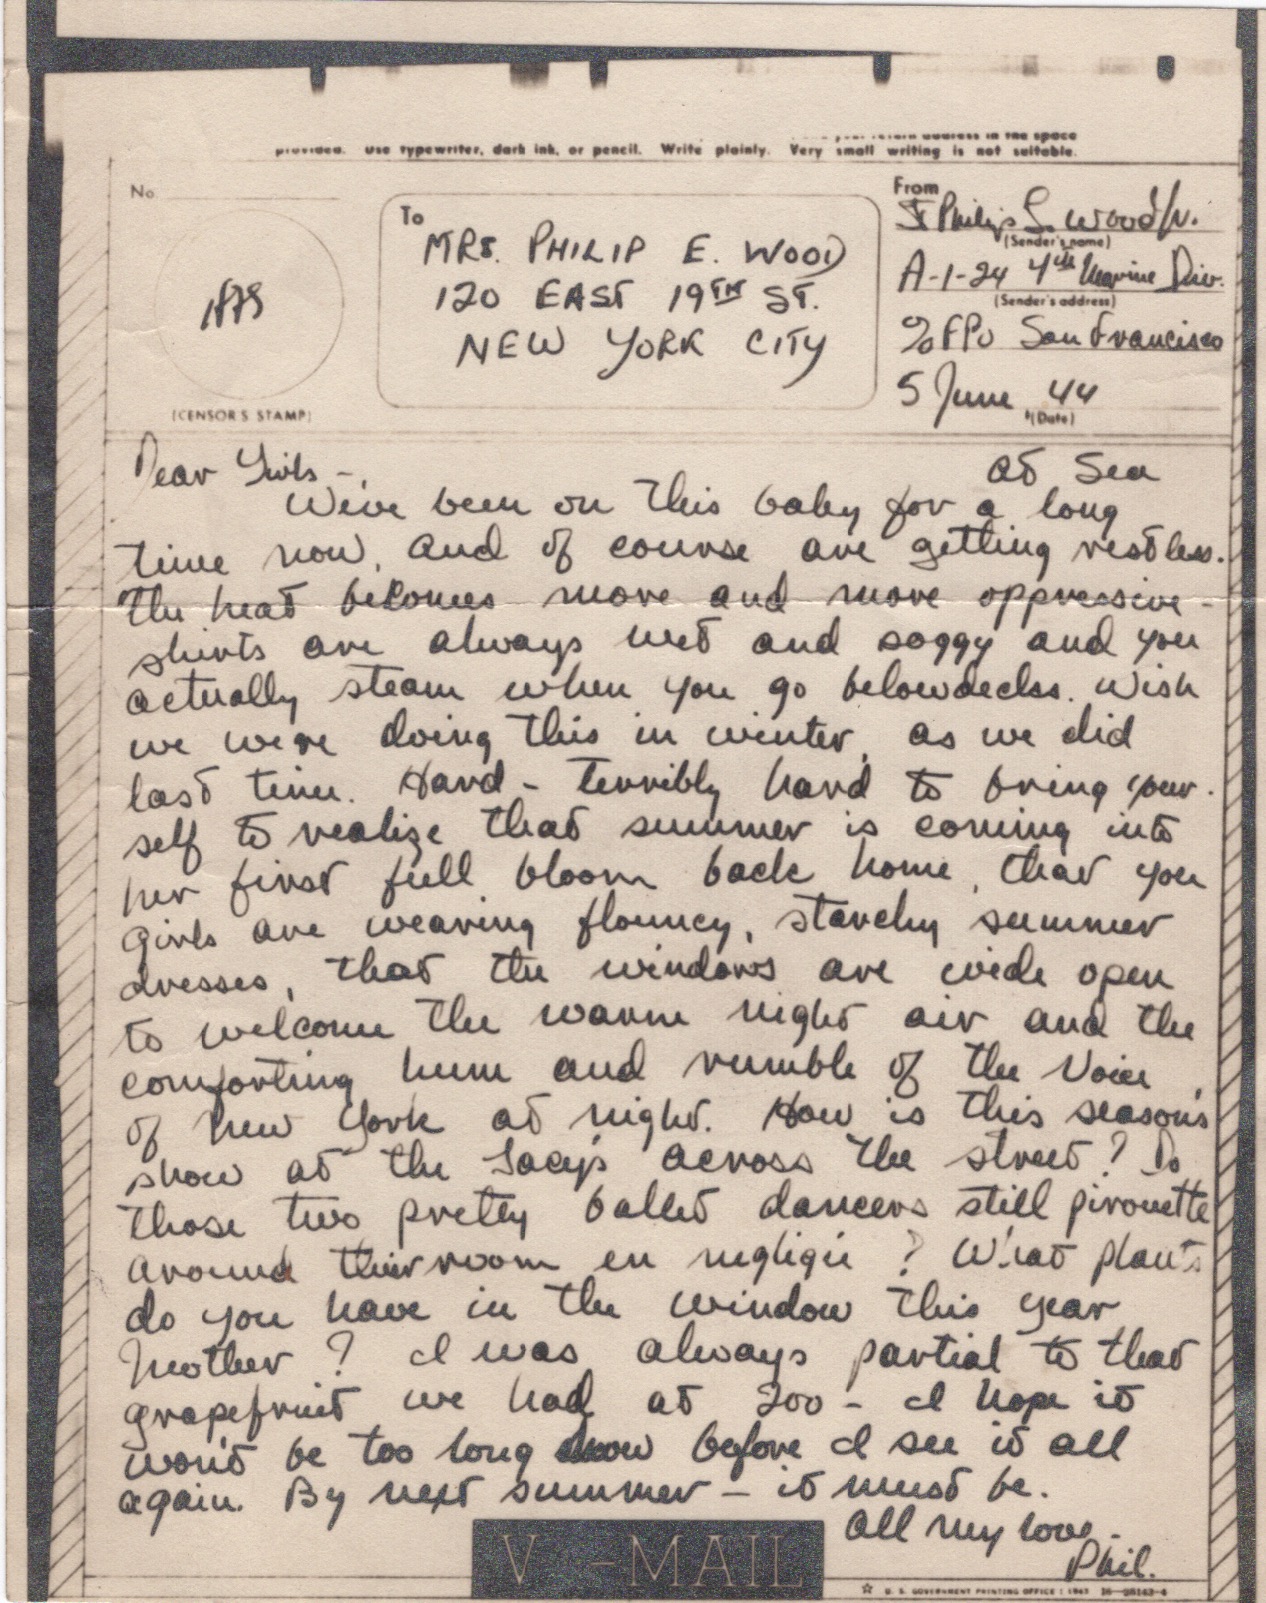 your return address in the space
provided. Use typewriter, dark ink, or pencil. Write plainly. Very small writing is not suitable.
No.
(CENSOR'S STAMP)
To
MRS. PHILIP E. WOOD
120 EAST 19TH ST.
NEW YORK CITY
From
Philip E. Wood Jr.
(Sender's name)
A-1-24 4th Marine Div.
(Sender's address)
c/o FPO San Francisco
5 June 44
(Date)
Dear Girls -
At Sea
We've been on this baby for a long
time now, and of course are getting restless.
The heat becomes more and more oppressive -
shirts are always wet and soggy and you
actually steam when you go belowdecks. Wish
we were doing this in winter, as we did
last time. Hard - terribly hard to bring your-
self to realize that summer is coming into
her first full bloom back home, that you
girls are wearing flouncy, starchy summer
dresses, that the windows are wide open
to welcome the warm night air and the
comforting hum and rumble of the Voice
of New York at night. How is this season's
show at the across the street? Do
those two pretty ballet dancers still pirouette
around their room en negligée? What plants
do you have in the window this year
Mother? I was always partial to that
grapefruit we had at 200 - I hope it
won't be too long now before I see it all
again. By next summer - it must be.
All my love -
Phil.
V-MAIL
U. S. GOVERNMENT PRINTING OFFICE : 1943 16-28143-4